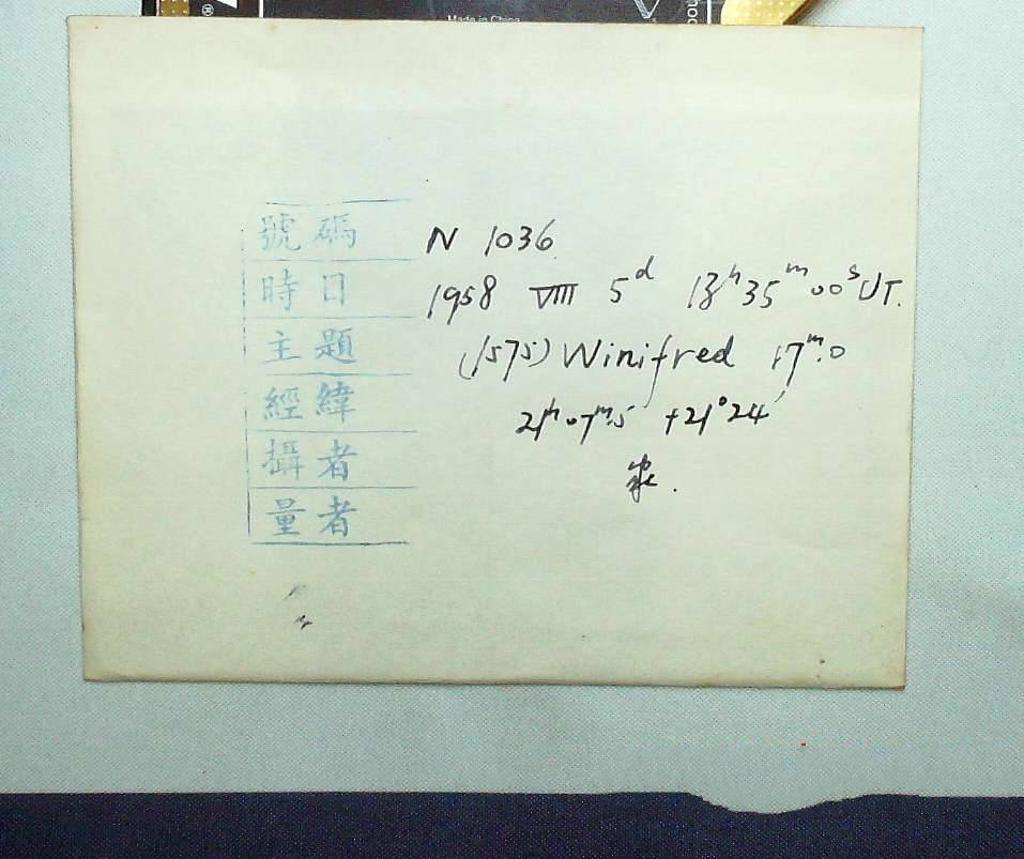 Made in China
號碼 N 1036
時日 1958 VIII 5ᵈ 13ʰ35ᵐ00ˢ UT.
主題 (1575) Winifred 17ᵐ.0
經緯 21ʰ07ᵐ.5 +21°24′
攝者
量者